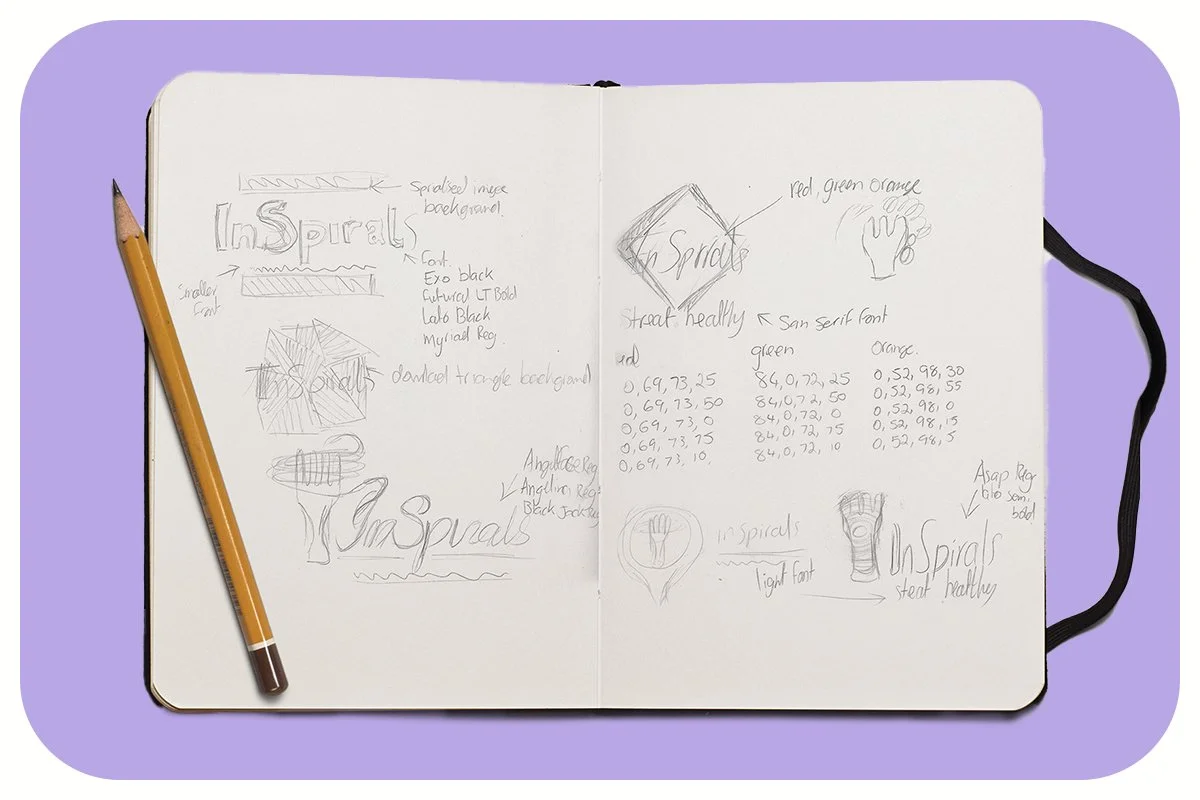 Spiralised image
background.
InSpirals
Smaller
font
font.
Exo black
Futura LT Bold
Lato Black
Myriad Reg.
InSpirals
download triangle background
Angelface Reg
Angelina Reg
Black Jack Reg
InSpirals
red, green orange
InSpirals
Streat healthy
San Serif font
red
0, 69, 73, 25
0, 69, 73, 50
0, 69, 73, 0
0, 69, 73, 75
0, 69, 73, 10.
green
84, 0, 72, 25
84, 0, 72, 50
84, 0, 72, 0
84, 0, 72, 75
84, 0, 72, 10
Orange.
0, 52, 98, 30
0, 52, 98, 55
0, 52, 98, 0
0, 52, 98, 15
0, 52, 98, 5
inspirals
light font
Asap Reg
bold
InSpirals
streat healthy